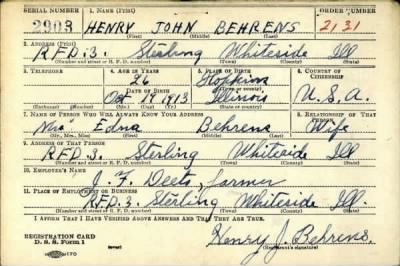 SERIAL NUMBER 1. NAME (Print) ORDER NUMBER
2903 HENRY JOHN BEHRENS 2131
(First) (Middle) (Last)
2. ADDRESS (Print)
R.F.D. 3. Sterling Whiteside Ill
(Number and street or R. F. D. number) (Town) (County) (State)
3. TELEPHONE 4. AGE IN YEARS 5. PLACE OF BIRTH 6. COUNTRY OF CITIZENSHIP
26 Hopkins
DATE OF BIRTH (Town or county)
Oct 19 1913 Illinois U.S.A.
(Exchange) (Number) (Mo.) (Day) (Yr.) (State or country)
7. NAME OF PERSON WHO WILL ALWAYS KNOW YOUR ADDRESS 8. RELATIONSHIP OF THAT PERSON
Mrs. Edna Behrens Wife
(Mr., Mrs., Miss) (First) (Middle) (Last)
9. ADDRESS OF THAT PERSON
R.F.D. 3. Sterling Whiteside Ill
(Number and street or R. F. D. number) (Town) (County) (State)
10. EMPLOYER'S NAME
J. F. Deets, farmer
11. PLACE OF EMPLOYMENT OR BUSINESS
R.F.D. 3. Sterling Whiteside Ill.
(Number and street or R. F. D. number) (Town) (County) (State)
I AFFIRM THAT I HAVE VERIFIED ABOVE ANSWERS AND THAT THEY ARE TRUE.
REGISTRATION CARD
D. S. S. Form 1 Henry J. Behrens.
(Registrant's signature)